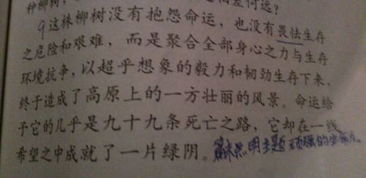 种柳树，
何运？
9这株柳树没有抱怨命运，也没有畏怯生存
之危险和艰难，而是聚合全部身心之力与生存
环境抗争，以超乎想象的毅力和韧劲生存下来，
终于造成了高原上的一方壮丽的风景。命运给
予它的几乎是九十九条死亡之路，它却在一线
希望之中成就了一片绿阴。点明主题 顽强的生命力